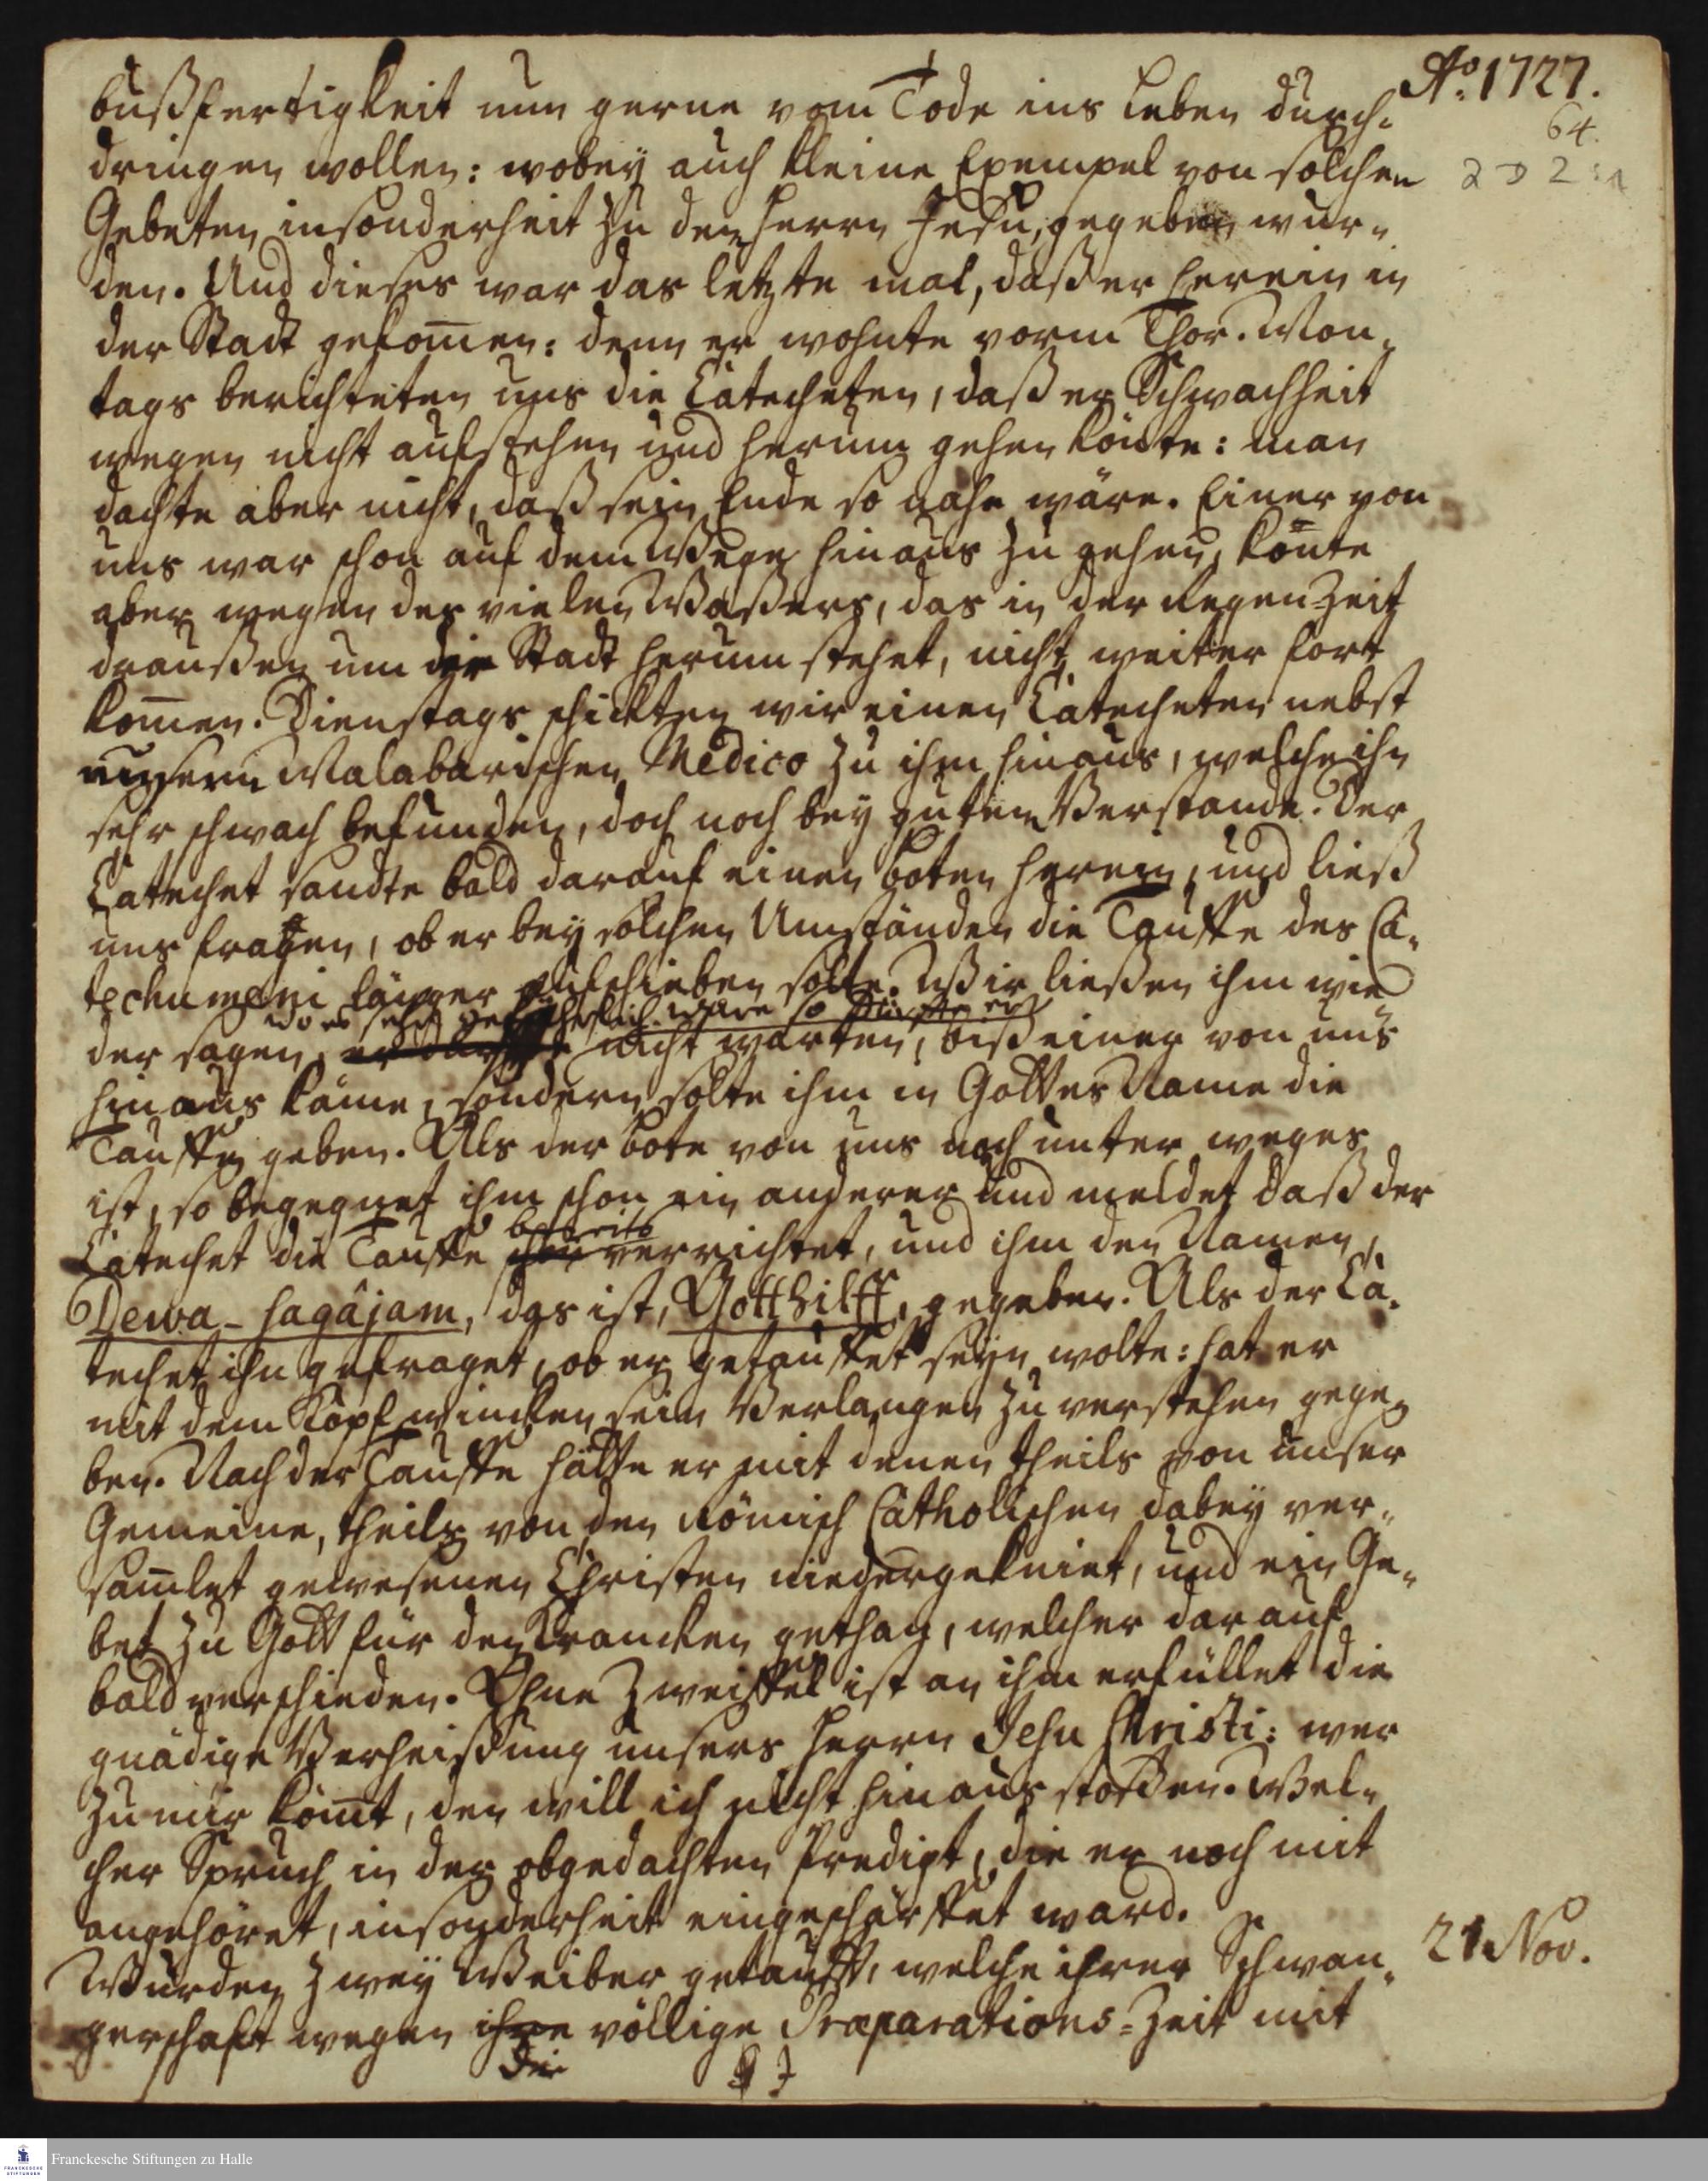 Aº. 1727.
64.
bußfertigkeit nun gerne vom Tode ins Leben durch-
dringen wollen: wobey auch kleine Exempel von solchen
Gebeten insonderheit zu dem Herrn Jesu, gegeben wur-
den. Und dieses war das letzte mal, daß er herein in
der Stadt gekom̄en: denn er wohnte vorm Thor. Mon-
tags berichteten uns die Catecheten, daß er Schwachheit
wegen nicht aufstehen und herum gehen könte: man
dachte aber nicht, daß sein Ende so nahe wäre. Einer von
uns war schon auf dem Wege hinaus zu gehen, kon̄te
aber wegen des vielen Waßers, das in der Regen-Zeit
draußen um die Stadt herum stehet, nicht weiter fort
kom̄en. Dienstags schickten wir einen Catecheten nebst
unserm Malabarischen Medico zu ihm hinaus, welche ihn
sehr schwach befunden, doch noch bey gutem Verstande. Der
Catechet sandte bald darauf einen Boten herein, und ließ
uns fragen, ob er bey solchen Umständen die Tauffe des Ca-
techumeni länger aufschieben solte. Wir ließen ihm wie
wo es sehr gefährlich wäre so dürfte er
der sagen, nicht warten, biß einer von uns
hinaus käme, sondern solte ihm in Gottes Name die
Tauffe geben. Als der Bote von uns noch unter weges
ist, so begegnet ihm schon ein anderer und meldet daß der
bereits
Catechet die Tauffe schon verrichtet, und ihm den Namen,
Dewa-sagâjam, das ist, Gotthilff, gegeben. Als der Ca-
techet ihn gefraget, ob er getauffet seyn wolte: hat er
mit dem Kopf wincken sein Verlangen zu verstehen gege-
ben. Nach der Tauffe hätte er mit denen theils von unser
Gemeine, theils von den Römisch Catholischen dabey ver-
sam̄let gewesenen Christen niedergekniet, und ein Ge-
bet zu Gott für den Krancken gethan, welcher darauf
bald verschieden. Ohne Zweiffel ist an ihm erfüllet die
gnädige Verheißung unsers Herrn Jesu Christi: wer
zu mir kom̄t, den will ich nicht hinaus stoßen. Wel-
cher Spruch in der obgedachten Predigt, die er noch mit
angehöret, insonderheit eingeschärffet ward.
21 Nov.
Wurden zwey Weiber getaufft, welche ihrer Schwan-
gerschaft wegen ihre völlige Præparations-Zeit mit
die
Franckesche Stiftungen zu Halle